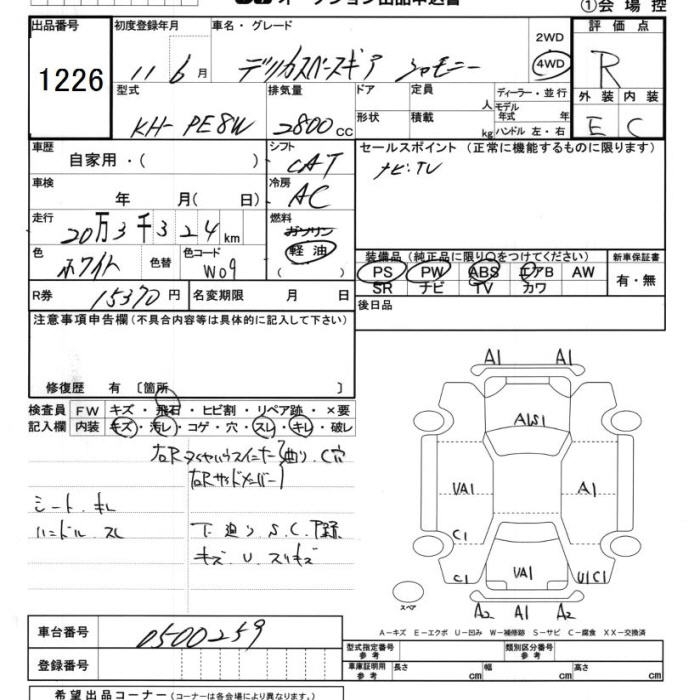 オークション出品申込書
①会場控
出品番号 1226
初度登録年月 11 6月
車名・グレード デリカスペースギア シャモニー
2WD
4WD
評価点 R
外装 内装
E C
型式 KH-PE8W
排気量 2800cc
ドア 形状
定員 人
積載 kg
ディーラー・並行
モデル年式 年
ハンドル 左・右
車歴 自家用・( )
シフト CAT
セールスポイント (正常に機能するものに限ります)
ナビ・TV
車検 年 月( 日)
冷房 AC
走行 20万3千324km
燃料 ガソリン
軽油
( )
色 ホワイト
色替
色コード W09
装備品 (純正品に限り○をつけてください)
PS PW ABS エアB AW
SR ナビ TV カワ
新車保証書
有・無
R券 15370円
名変期限 月 日
後日品
注意事項申告欄(不具合内容等は具体的に記入して下さい)
修復歴 有 〔箇所 〕
検査員記入欄
FW キズ・飛石・ヒビ割・リペア跡・×要
内装 キズ・汚レ・コゲ・穴・スレ・キレ・破レ
右Rタイヤハウスインナー 曲り.C穴
右Rサイドメンバー
シート.キレ
ハンドル.スレ
下廻り.S.C.
キズ.U.スリキズ
A1 A1
A1S1
UA1 A1
C1
C1 UA1 U1C1
スペア
A2 A1 A2
A-キズ E-エクボ U-凹み W-補修跡 S-サビ C-腐食 XX-交換済
車台番号 0500259
登録番号
型式指定番号 参考
類別区分番号 参考
車庫証明用 参考
長さ cm 幅 cm 高さ cm
希望出品コーナー(コーナーは各会場により異なります。)